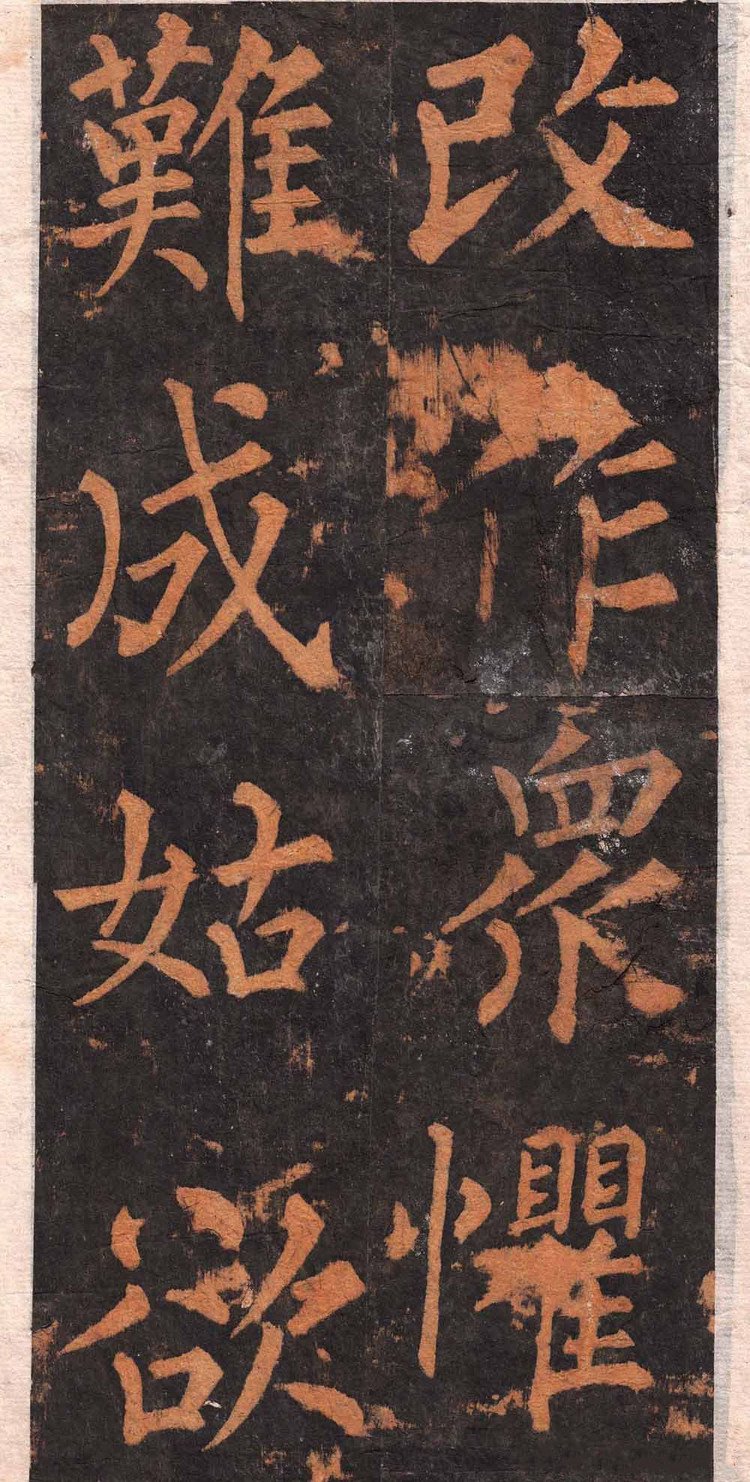 改作衆懼
難成姑欲